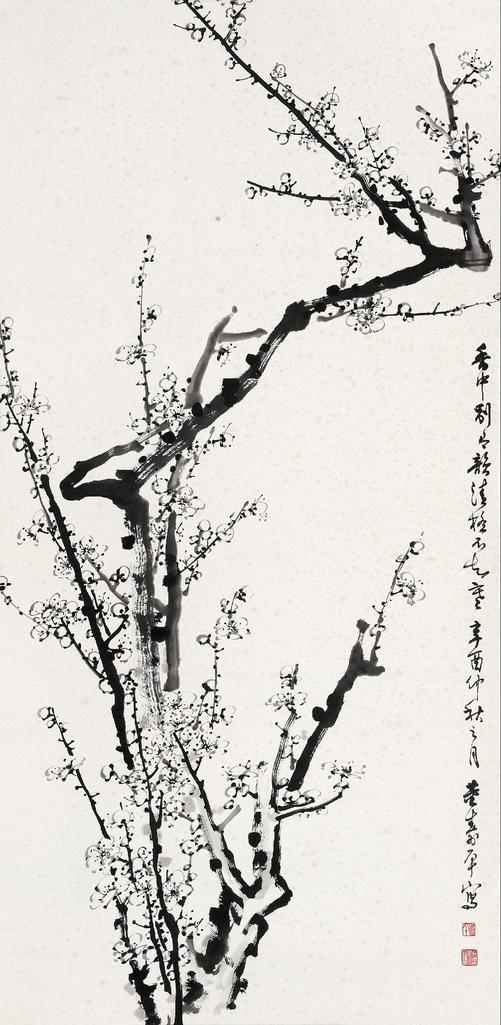 香中别有韵清极不知寒辛酉仲秋之月董寿平写